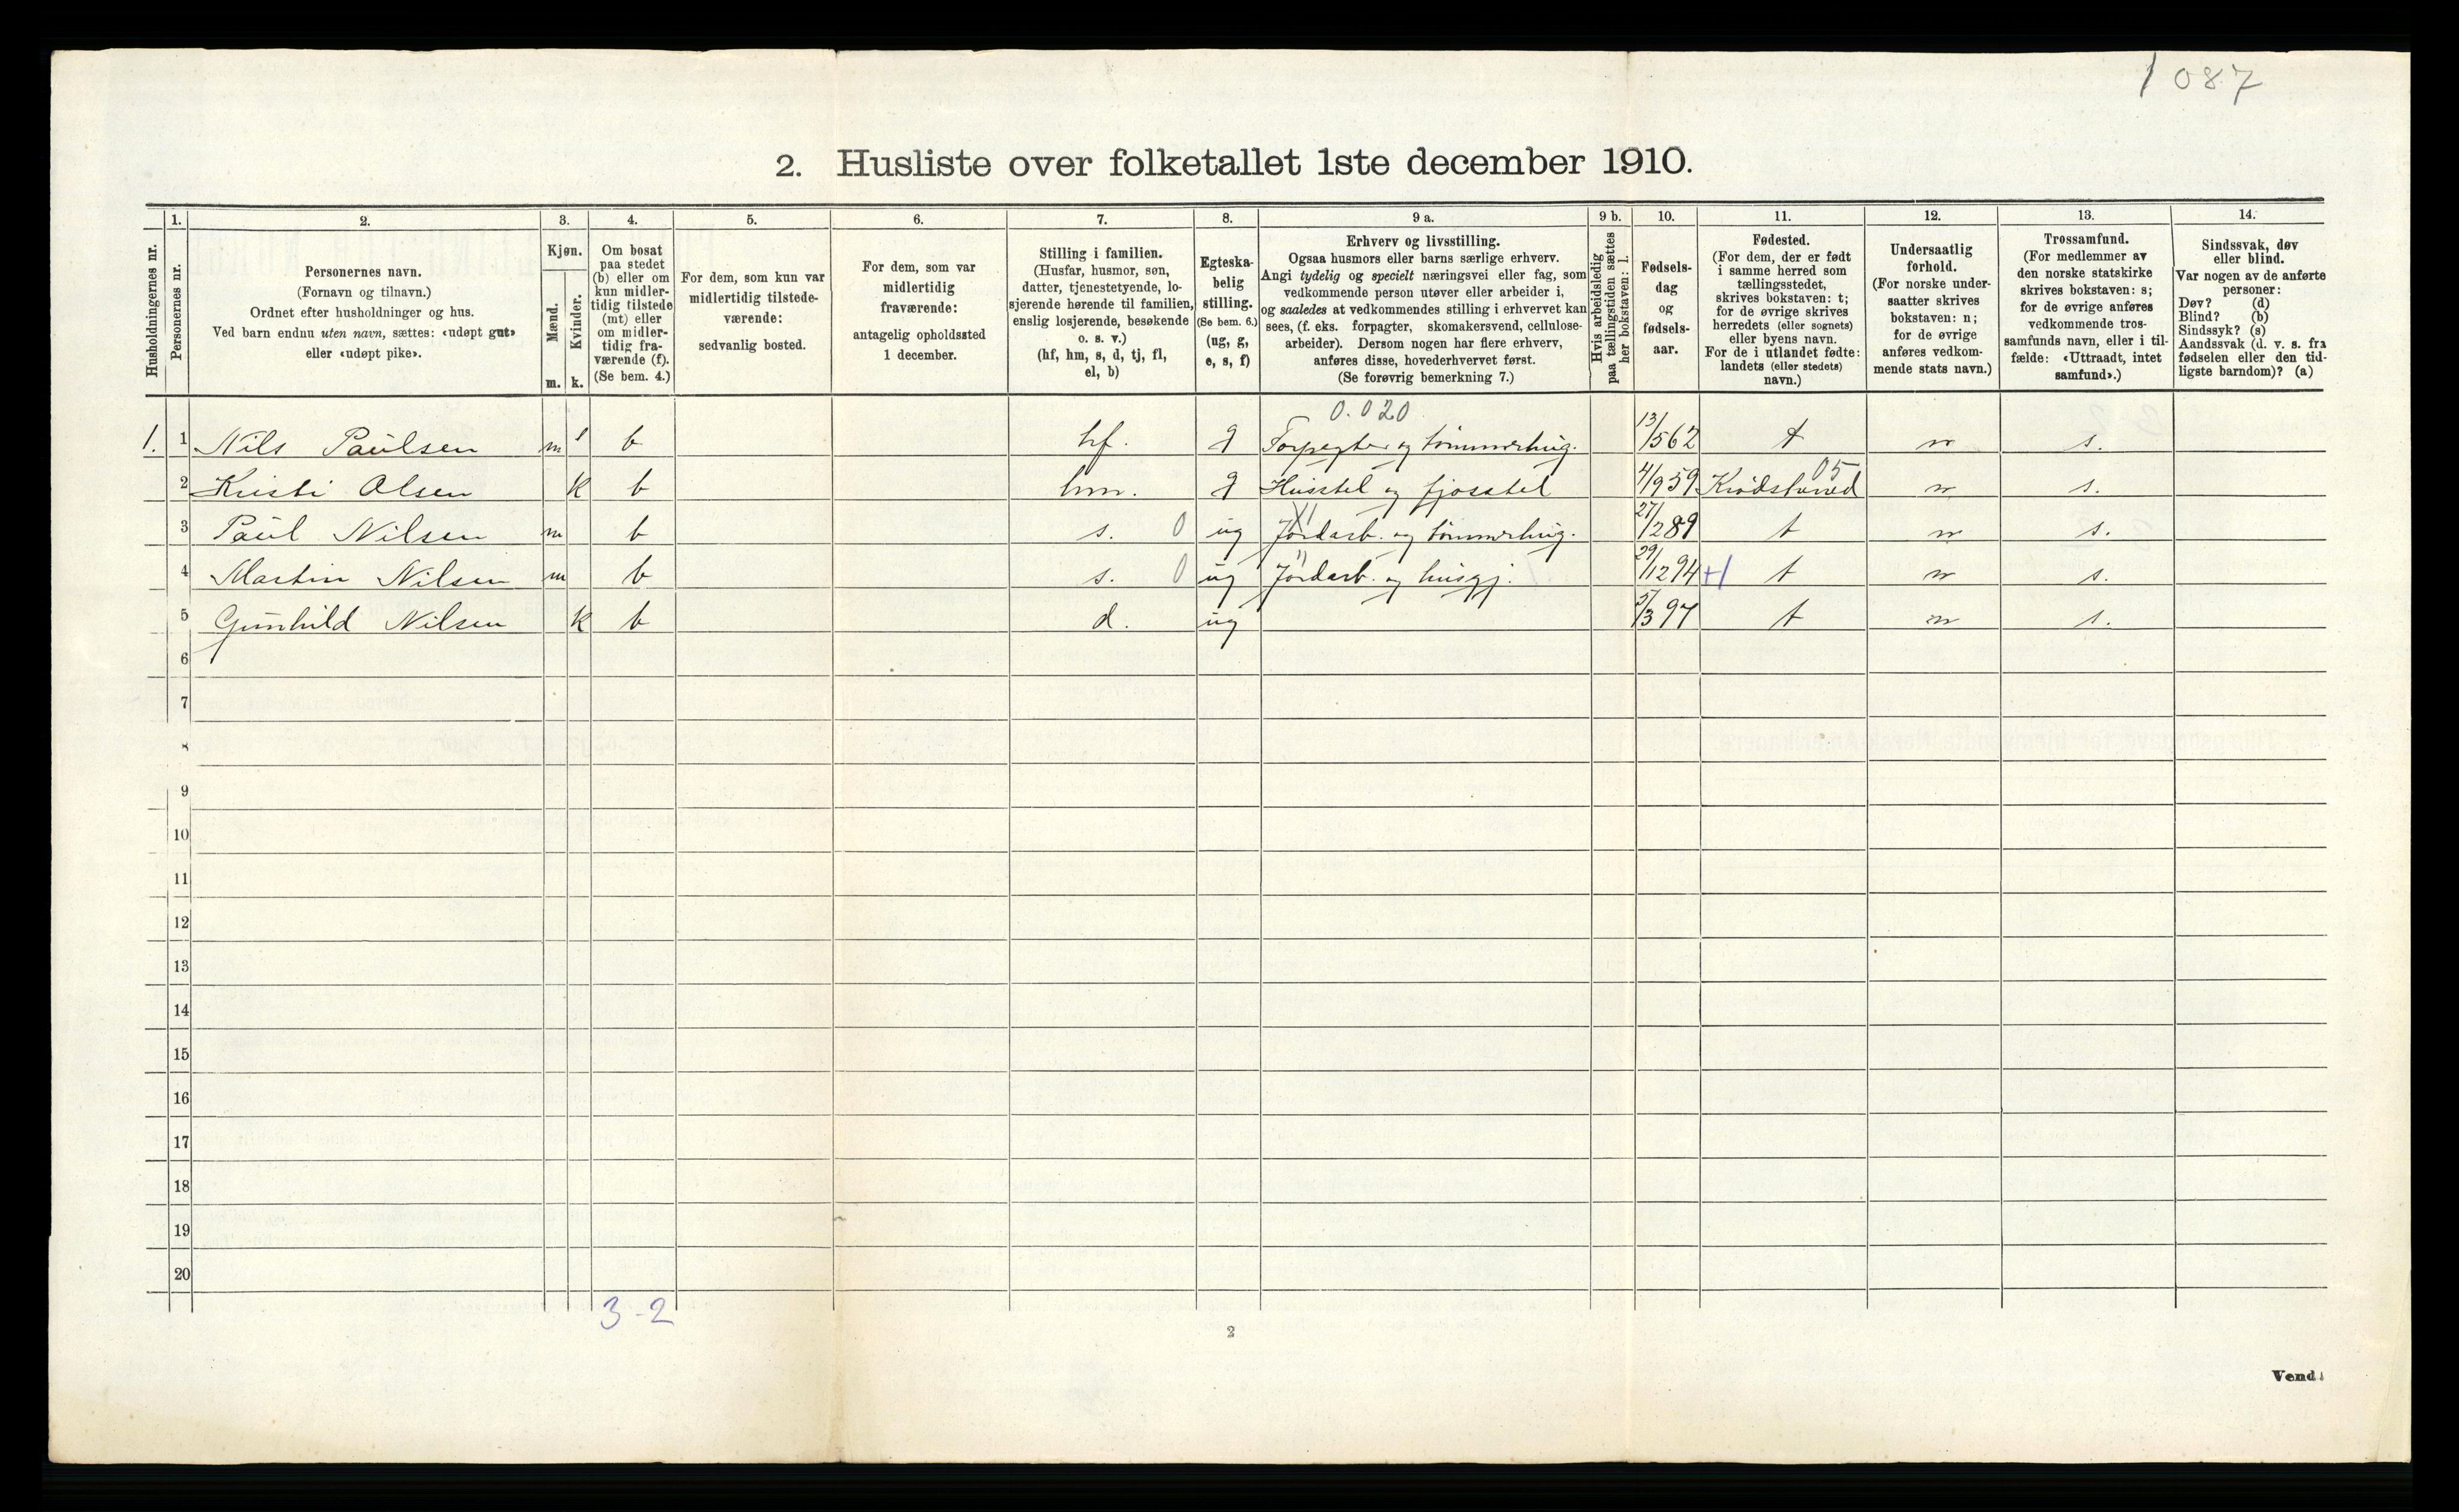 1087
2. Husliste over folketallet 1ste december 1910.
Husholdningernes nr.
1.
Personernes nr.
2.
Personernes navn.
(Fornavn og tilnavn.)
Ordnet efter husholdninger og hus.
Ved barn endnu uten navn, sættes: «udøpt gut»
eller «udøpt pike».
3.
Kjøn.
Mænd.
Kvinder.
m. k.
4.
Om bosat
paa stedet
(b) eller om
kun midler-
tidig tilstede
(mt) eller
om midler-
tidig fra-
værende (f).
(Se bem. 4.)
5.
For dem, som kun var
midlertidig tilstede-
værende:
sedvanlig bosted.
6.
For dem, som var
midlertidig
fraværende:
antagelig opholdssted
1 december.
7.
Stilling i familien.
(Husfar, husmor, søn,
datter, tjenestetyende, lo-
sjerende hørende til familien,
enslig losjerende, besøkende
o. s. v.)
(hf, hm, s, d, tj, fl,
el, b)
8.
Egteska-
belig
stilling.
(Se bem. 6.)
(ug, g,
e, s, f)
9 a.
Erhverv og livsstilling.
Ogsaa husmors eller barns særlige erhverv.
Angi tydelig og specielt næringsvei eller fag, som
vedkommende person utøver eller arbeider i,
og saaledes at vedkommendes stilling i erhvervet kan
sees, (f. eks. forpagter, skomakersvend, cellulose-
arbeider). Dersom nogen har flere erhverv,
anføres disse, hovederhvervet først.
(Se forøvrig bemerkning 7.)
9 b.
Hvis arbeidsledig
paa tællingstiden sættes
her bokstaven: l.
10.
Fødsels-
dag
og
fødsels-
aar.
11.
Fødested.
(For dem, der er født
i samme herred som
tællingsstedet,
skrives bokstaven: t;
for de øvrige skrives
herredets (eller sognets)
eller byens navn.
For de i utlandet fødte:
landets (eller stedets)
navn.)
12.
Undersaatlig
forhold.
(For norske under-
saatter skrives
bokstaven: n;
for de øvrige
anføres vedkom-
mende stats navn.)
13.
Trossamfund.
(For medlemmer av
den norske statskirke
skrives bokstaven: s;
for de øvrige anføres
vedkommende tros-
samfunds navn, eller i til-
fælde: «Uttraadt, intet
samfund».)
14.
Sindssvak, døv
eller blind.
Var nogen av de anførte
personer:
Døv? (d)
Blind? (b)
Sindssyk? (s)
Aandssvak (d. v. s. fra
fødselen eller den tid-
ligste barndom)? (a)
0.020
1. 1 Nils Paulsen m 1 b hf. g Forpagter og tømmerhug. 13/5 62 t n s.
05
2 Kristi Olsen k b hm. g Husstel og fjøsstel 4/9 59 Krødsherred n s.
3 Paul Nilsen m b s. 0 ug Jordarb. og tømmerhug. 27/2 89 t n s.
4 Martin Nilsen m b s. 0 ug Jordarb. og husgj. 29/12 94 +1 t n s.
5 Gunhild Nilsen k b d. ug /3 97 t n s.
6
7
8
9
10
11
12
13
14
15
16
17
18
19
20
3-2
2
Vend!